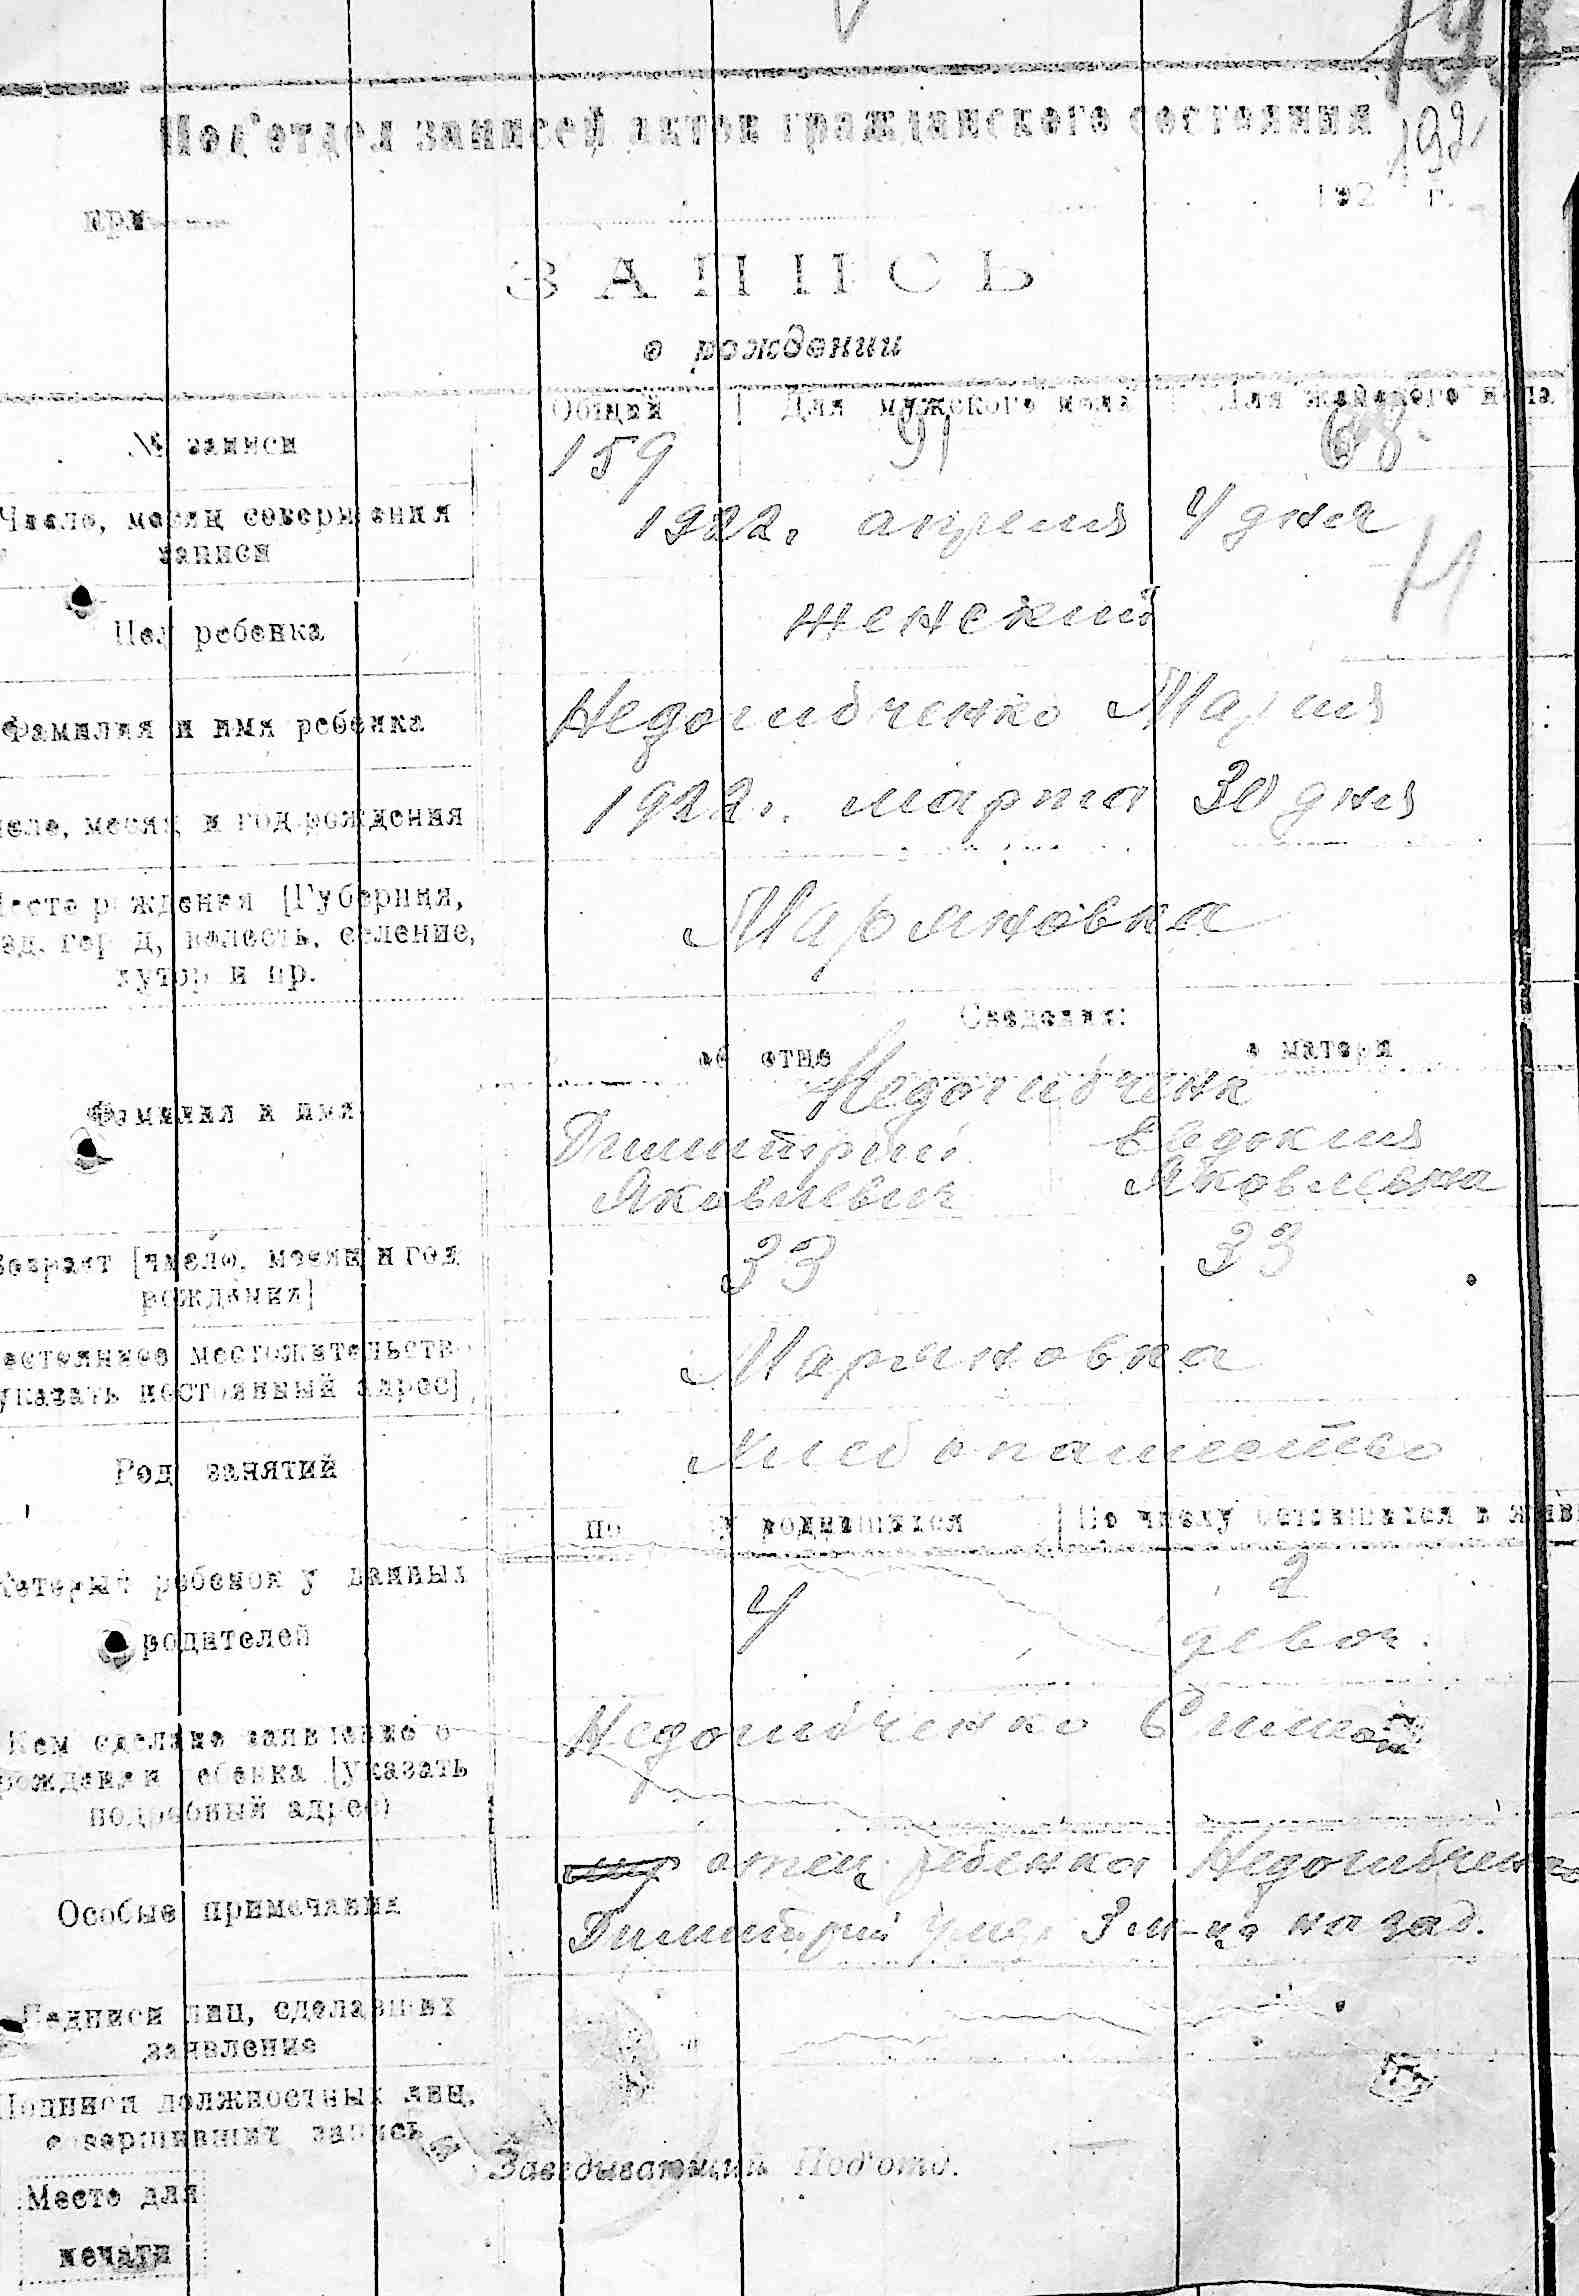 Под'отдел записей актов гражданского состояния
192 г.
ЗАПИСЬ
о рождении
Общий Для мужского пола Для женского пола
№ записи 159 91 68
Число, месяц совершения записи 1922. апреля 4 дня
Пол ребенка женский
Фамилия и имя ребенка Недогибченко Мария
Число, месяц и год рождения 1922. марта 30 дня
Место рождения [Губерния,
город, волость, селение,
хутор и пр. Марьяновка
Сведения:
об отце о матери
Недогибченк
Фамилия и имя
Дмитрий Евдокия
Яковлевич Яковлевна
Возраст [число, месяц и год
рождения] 33 33
Постоянное местожительство
[указать постоянный адрес] Марьяновка
Род занятий Хлебопашество
По родившихся По числу оставшихся в жив
Который ребенок у данных 4 2
родителей девоч.
Кем сделано заявление о Недогибченко
рождении ребенка [указать
подробный адрес]
отец ребенка Недогибченко
Особые примечания
Димитрий умер 3 м-ца назад.
Подписи лиц, сделавших
заявление
Подписи должностных лиц,
совершивших запись
Заведывающий Под'отд.
Место для
печати